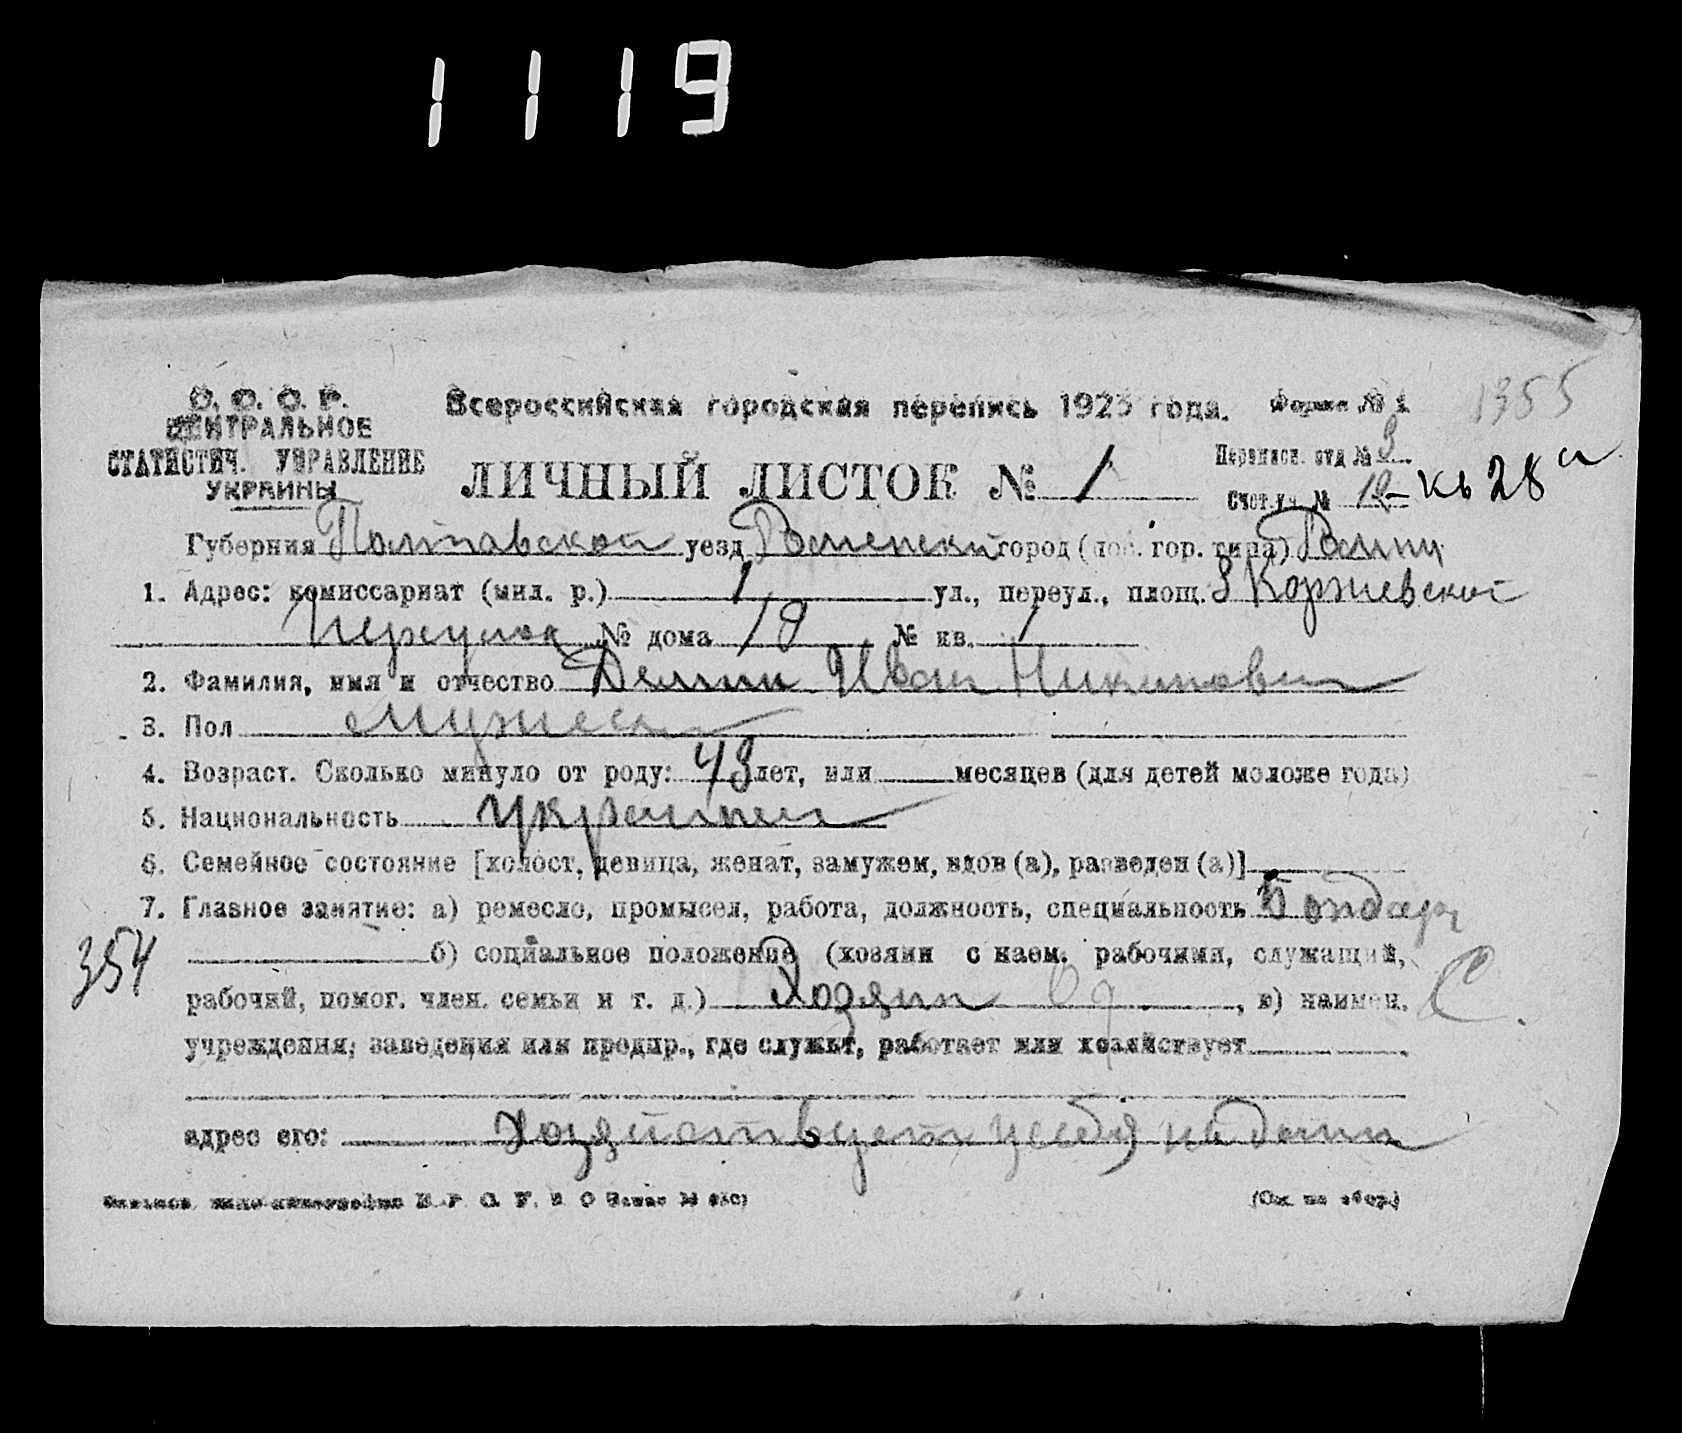 1119
У. С. С. Р. Всероссийская городская перепись 1923 года. Форма № 1 1355
ЦЕНТРАЛЬНОЕ
СТАТИСТИЧ. УПРАВЛЕНИЕ
УКРАИНЫ
ЛИЧНЫЙ ЛИСТОК № 1
Переписн. отд № 3
Счетн. уч. № 12 кв 28 а
Губерния Полтавской уезд Роменский город (пос. гор. типа) Ромны
1. Адрес: комиссариат (мил. р.) 1 ул., переул., площ. 3 Коржевской
Переулок № дома 19 № кв. 1
2. Фамилия, имя и отчество Демин Иван Никитович
3. Пол мужеский
4. Возраст. Сколько минуло от роду: 48 лет, или месяцев (для детей моложе года)
5. Национальность украинец
6. Семейное состояние [холост, девица, женат, замужем, вдов (а), разведен (а)]
7. Главное занятие: а) ремесло, промысел, работа, должность, специальность Бондарь
354 б) социальное положение (хозяин с наем. рабочими, служащий,
рабочий, помог. член. семьи и т. д.) Хозяин од , в) наимен. С
учреждения, заведения или предпр., где служит, работает или хозяйствует
адрес его: Хозяйствует у себя на дому
(См. на обор.)